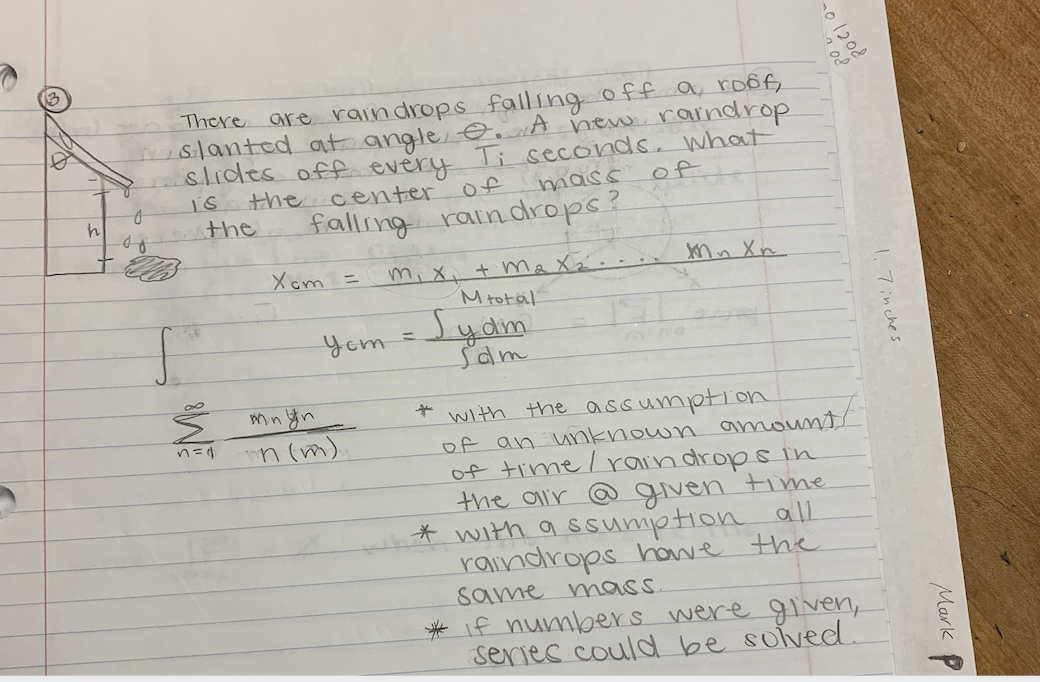 ③
There are raindrops falling off a roof,
slanted at angle θ. A new raindrop
slides off every Ti seconds. What
is the center of mass of
the falling raindrops?
θ
h
xcm = m1 x1 + m2 x2 .... mn xn
Mtotal
∫ ycm = ∫ y dm
∫ dm
∞
Σ mn yn
n=1 n(m)
* with the assumption
of an unknown amount
of time/raindrops in
the air @ given time
* with assumption all
raindrops have the
same mass.
* if numbers were given,
series could be solved.
1.7 inches
Mark P